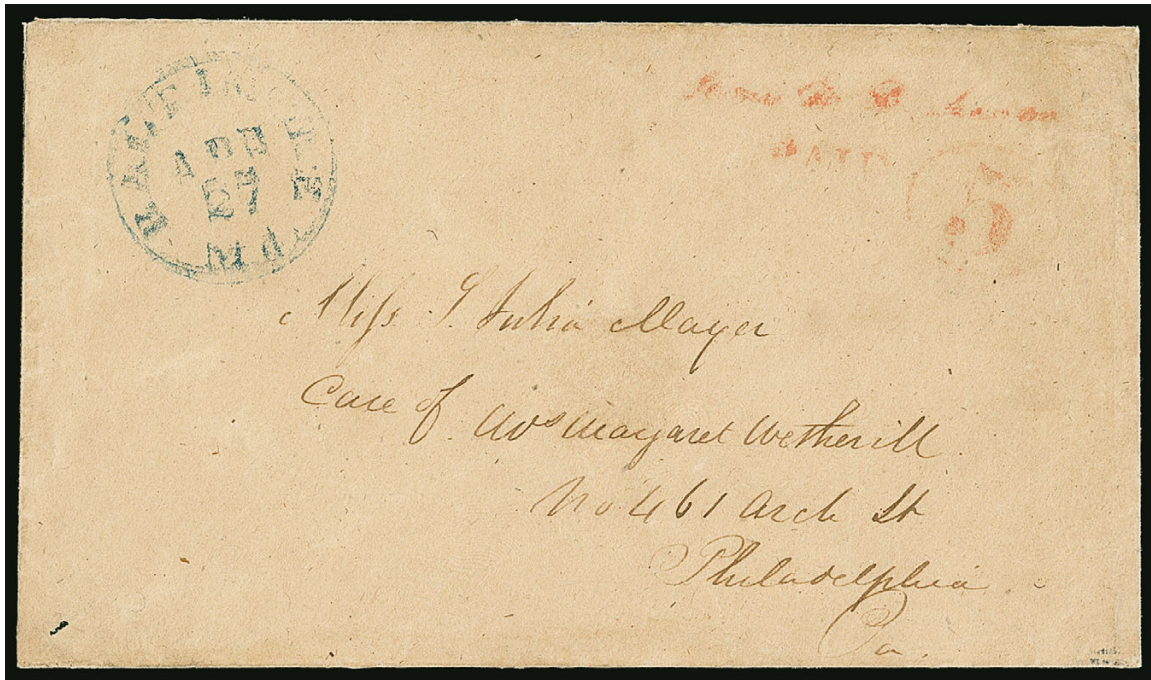 BALTIMORE Md.
APR
27
PAID
5
Miss S. Julia Mayer
Care of Mrs Margaret Wetherill
No 461 Arch St
Philadelphia
Pa.